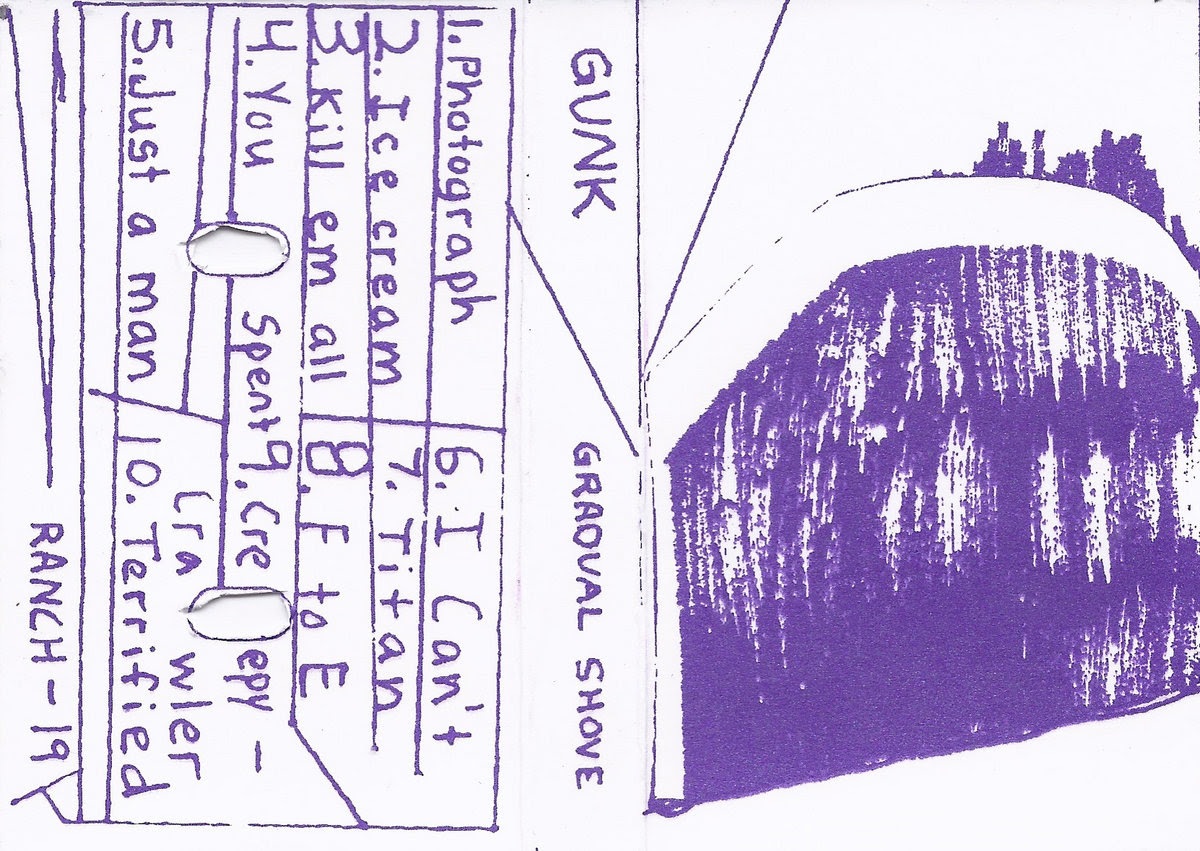 GUNK
GRADUAL SHOVE
1. Photograph
2. Ice cream
3. Kill em all
4. You Spent
5. Just a man
6. I Can't
7. Titan
8. F to E
9. Creepy-
Crawler
10. Terrified
RANCH-19